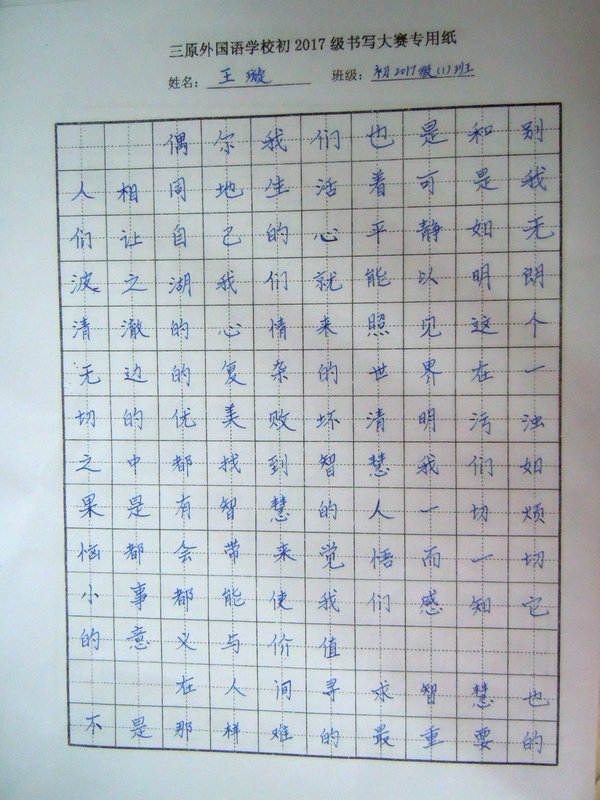 三原外国语学校初2017级书写大赛专用纸
姓名: 王璇 班级: 初2017级(1)班
偶尔我们也是和别
人相同地生活着可是我
们让自己的心平静如无
波之湖我们就能以明朗
清澈的心情来照见这个
无边的复杂的世界在一
切的优美败坏清明污浊
之中都找到智慧我们如
果是有智慧的人一切烦
恼都会带来觉悟而一切
小事都能使我们感知它
的意义与价值
在人间寻求智慧也
不是那样难的最重要的